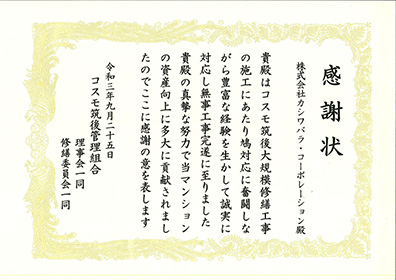 感謝状
株式会社カシワバラ・コーポレーション殿
貴殿はコスモ筑後大規模修繕工事
の施工にあたり鳩対応に奮闘しな
がら豊富な経験を生かして誠実に
対応し無事工事完遂に至りました
貴殿の真摯な努力で当マンション
の資産向上に多大に貢献されまし
たのでここに感謝の意を表します
令和三年九月二十五日
コスモ筑後管理組合
理事会一同
修繕委員会一同